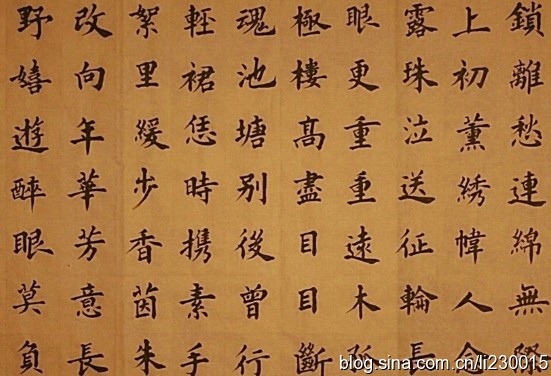 鎖離愁連綿無際
上初薰綉幃人念
露珠泣送征輪長
眼更重重遠木
極樓髙盡目目斷
魂池塘别後曾行
輕裙恁時攜素手
絮里緩步香茵朱
改向年華芳意長
野嬉遊醉眼莫負
blog.sina.com.cn/li230015